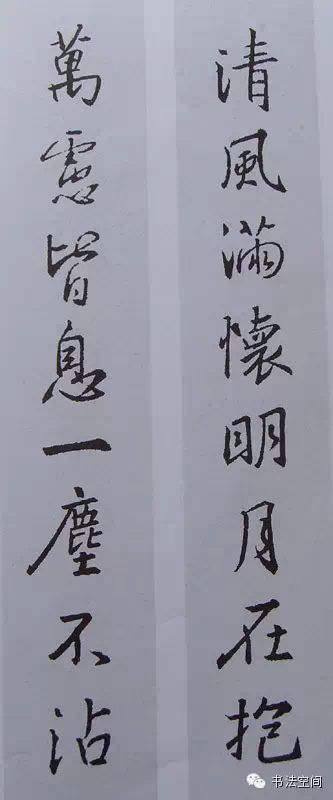 清風滿懷明月在抱
萬慮皆息一塵不沾
书法空间